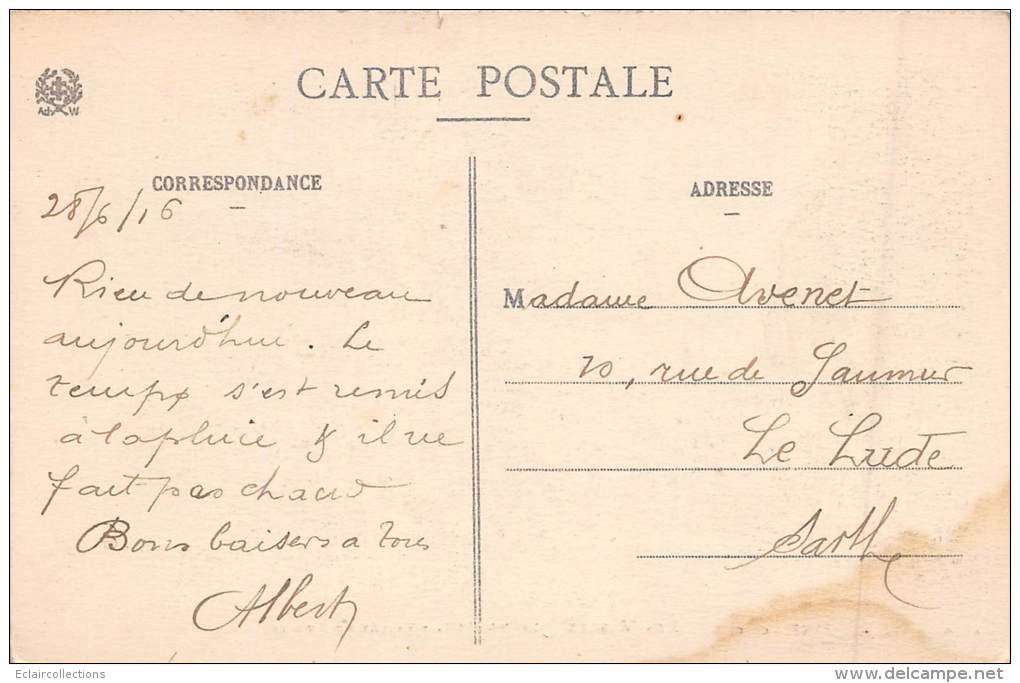 CARTE POSTALE
Ad W
CORRESPONDANCE
28/6/16
Rien de nouveau
aujourd'hui. Le
temps s'est remis
à la pluie & il ne
fait pas chaud
Bons baisers a tous
Albert
ADRESSE
Madame Avenet
70, rue de Saumur
Le Lude
Sarthe
Eclaircollections
delcampe.net